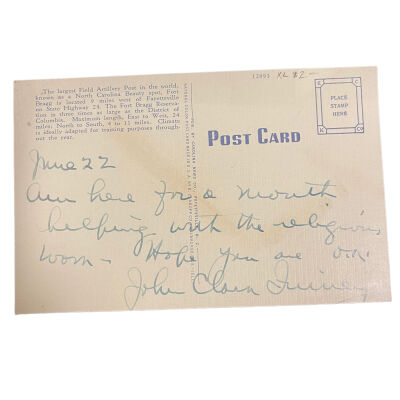 12893 XL $2-
The largest Field Artillery Post in the world,
known as a North Carolina Beauty spot, Fort
Bragg is located 9 miles west of Fayetteville
on State Highway 24. The Fort Bragg Reserva-
tion is three times as large as the District of
Columbia. Maximum length, East to West, 24
miles; North to South, 4 to 11 miles. Climate
is ideally adapted for training purposes through-
out the year.
PLACE
STAMP
HERE
POST CARD
June 22
Am here for a month
helping with the religious
work - Hope you are o.k.
John